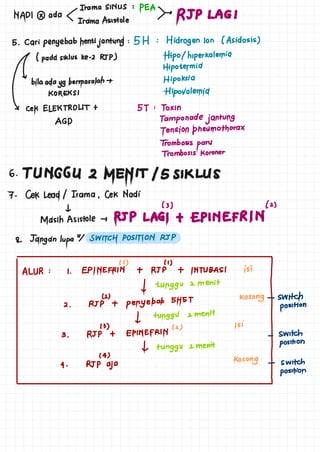 Irama SINUS : PEA
NADI ⊗ ada < Irama Asistole > RJP LAGI
5. Cari penyebab henti jantung : 5H : Hidrogen Ion (Asidosis)
(pada siklus ke-2 RJP) Hipo/hiperkalemia
Hipotermia
bila ada yg bermasalah → Hipoksia
KOREKSI Hipovolemia
Cek ELEKTROLIT + 5T : Toxin
AGD Tamponade jantung
Tension pneumothorax
Trombosis paru
Trombosis Koroner
6. TUNGGU 2 MENIT / 5 SIKLUS
7. Cek Lead / Irama, Cek Nadi
↓ (3) (2)
Masih Asistole → RJP LAGI + EPINEFRIN
8. Jangan lupa u/ SWITCH POSITION RJP
ALUR : (1) (1)
1. EPINEFRIN + RJP + INTUBASI isi
↓ tunggu 2 menit
(2) Kosong → switch position
2. RJP + penyebab 5H5T
↓ tunggu 2 menit
(3) (2) Isi
3. RJP + EPINEFRIN switch position
↓ tunggu 2 menit
(4) Kosong
4. RJP aja switch position